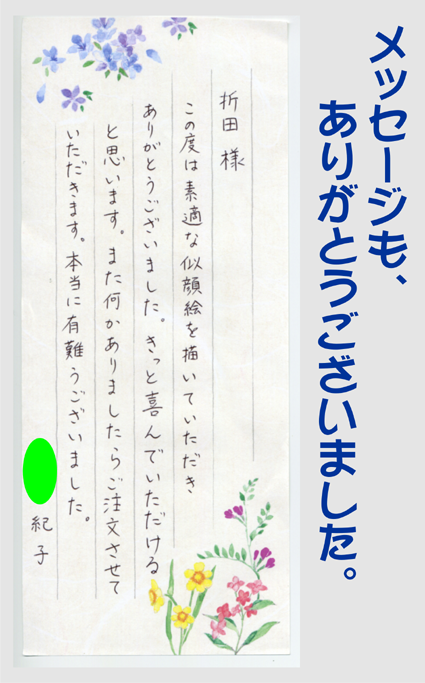 メッセージも、
ありがとうございました。
折田 様
この度は素適な似顔絵を描いていただき
ありがとうございました。きっと喜んでいただける
と思います。また何かありましたらご注文させて
いただきます。本当に有難うございました。
紀子